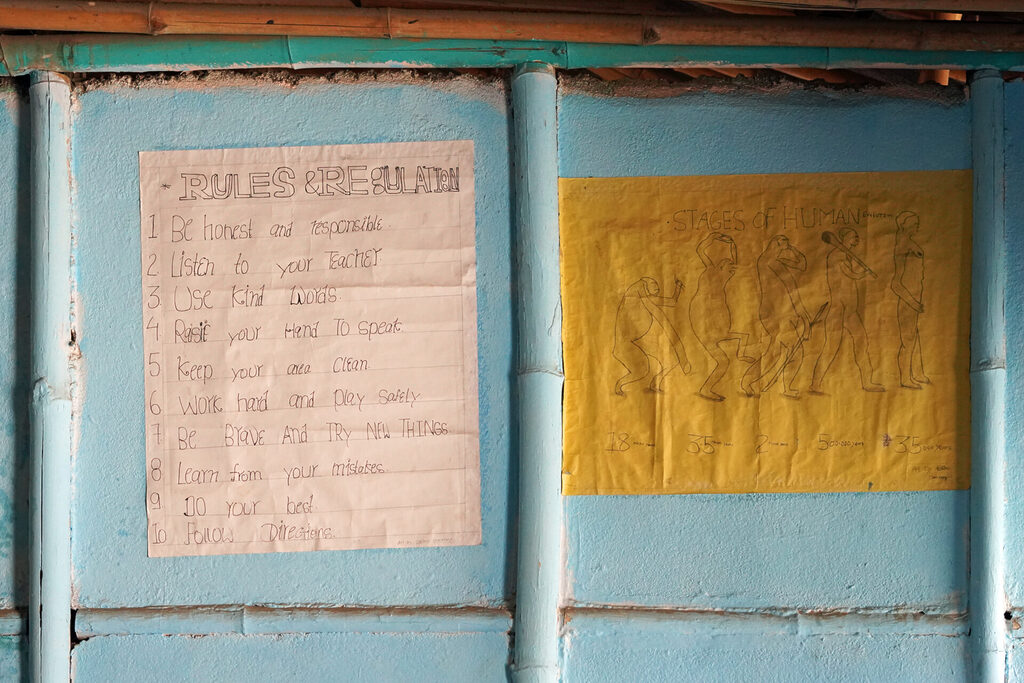 * RULES & REGULATION
1 Be honest and responsible.
2 Listen to your Teacher
3. Use Kind Words.
4 Raise your Hand To Speak
5 Keep your area Clean
6 Work hard and play Safely
7 Be Brave And TRY NEW THINGS.
8 Learn from your mistakes.
9 DO your best
10 Follow Directions.
STAGES OF HUMAN EVOLUTION
18 35 2 500,000 years 35